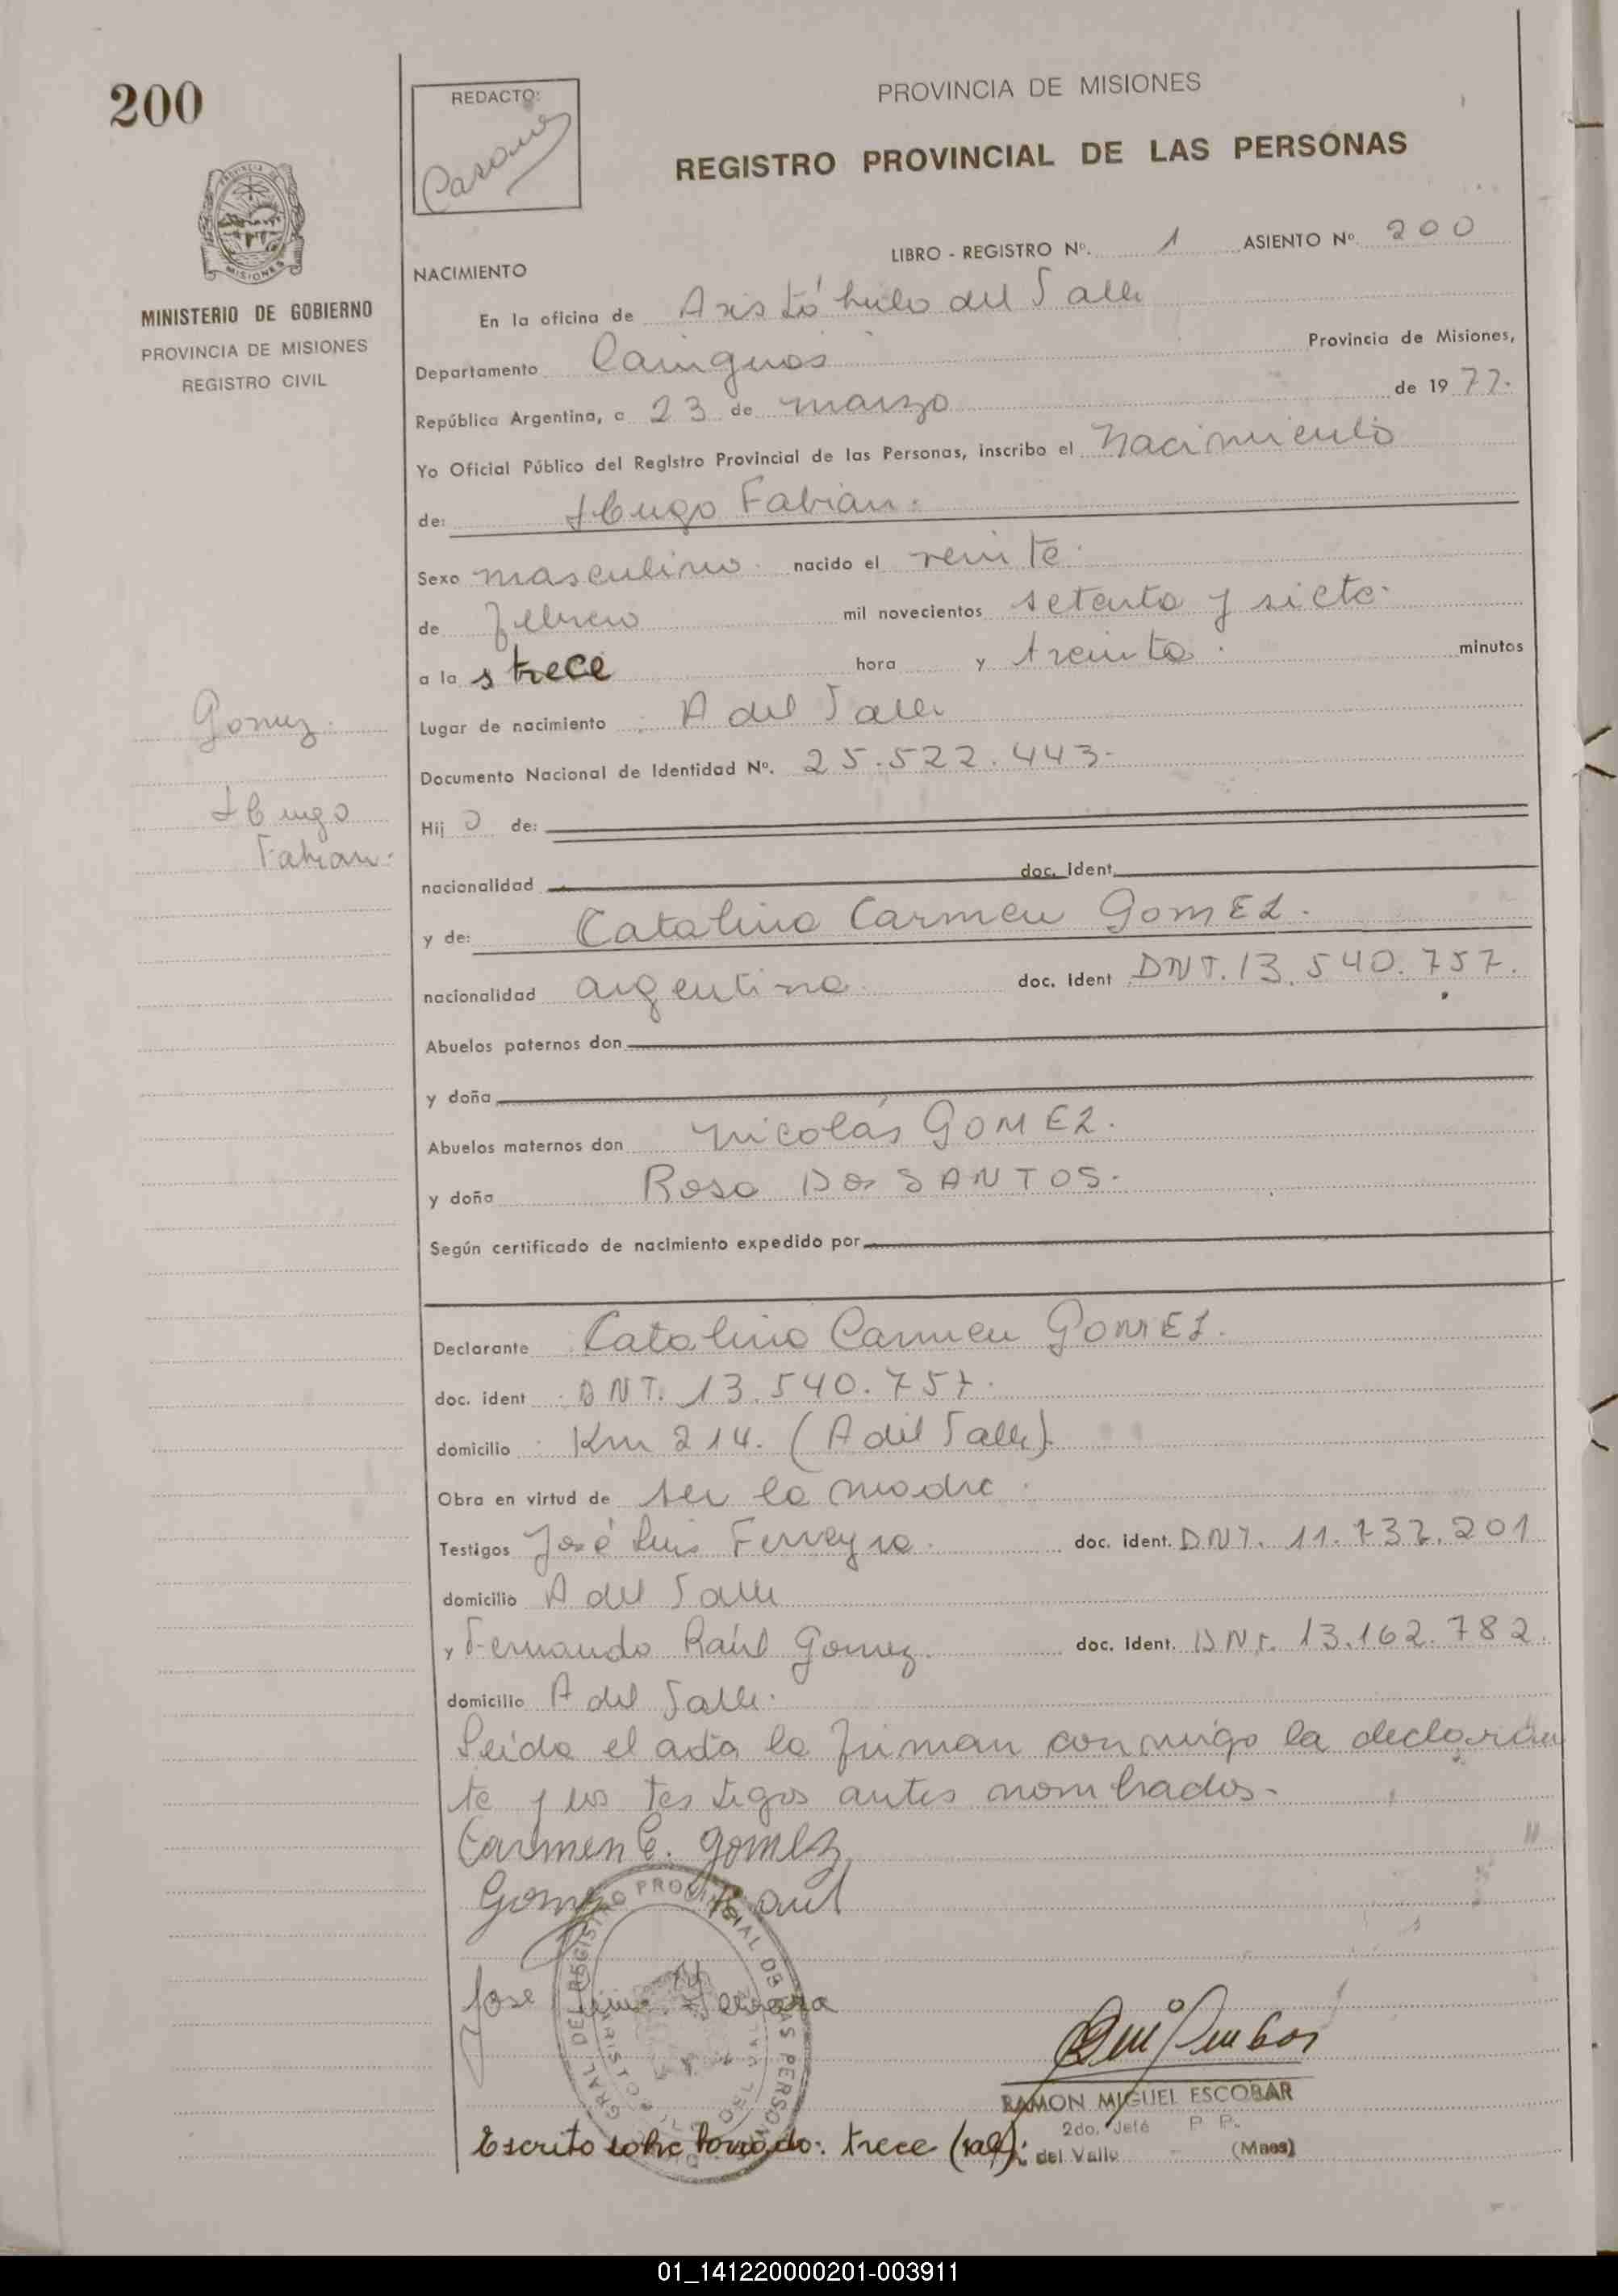 200
REDACTO:
PROVINCIA DE MISIONES
REGISTRO PROVINCIAL DE LAS PERSONAS
LIBRO - REGISTRO Nº. 1 ASIENTO Nº 200
MISIONES
MINISTERIO DE GOBIERNO
PROVINCIA DE MISIONES
REGISTRO CIVIL
NACIMIENTO
En la oficina de Aristóbulo del Valle
Departamento Cainguas Provincia de Misiones,
República Argentina, a 23 de marzo de 1977.
Yo Oficial Público del Registro Provincial de las Personas, inscribo el Nacimiento
de: Hugo Fabian.
Sexo masculino. nacido el veinte.
de febrero mil novecientos setenta y siete.
a la s trece hora y treinta. minutos
Lugar de nacimiento A del Valle
Documento Nacional de Identidad Nº. 25.522.443-
Gomez.
Hugo
Fabian.
Hij o de:
nacionalidad doc. ident.
y de: Catalina Carmen GOMEZ.
nacionalidad argentina doc. ident DNI. 13.540.757.
Abuelos paternos don
y doña
Abuelos maternos don Nicolás GOMEZ.
y doña Rosa Dos SANTOS.
Según certificado de nacimiento expedido por
Declarante Catalina Carmen GOMEZ.
doc. ident DNI. 13.540.757.
domicilio Km 214. (A del Valle).
Obra en virtud de ser la madre.
Testigos José Luis Ferreyra. doc. ident. DNI. 11.732.201
domicilio A del Valle
y Fernando Raúl Gomez. doc. ident. DNI. 13.162.782.
domicilio A del Valle.
Leída el acta la firman conmigo la declaran
te y los testigos antes nombrados.-
Carmen C. gomez
Gomez Raul
Jose
RAMON MIGUEL ESCOBAR
2do. Jefe P. P.
del Valle (Mnes)
Escrito sobre borrado: trece (vale):
01_141220000201-003911